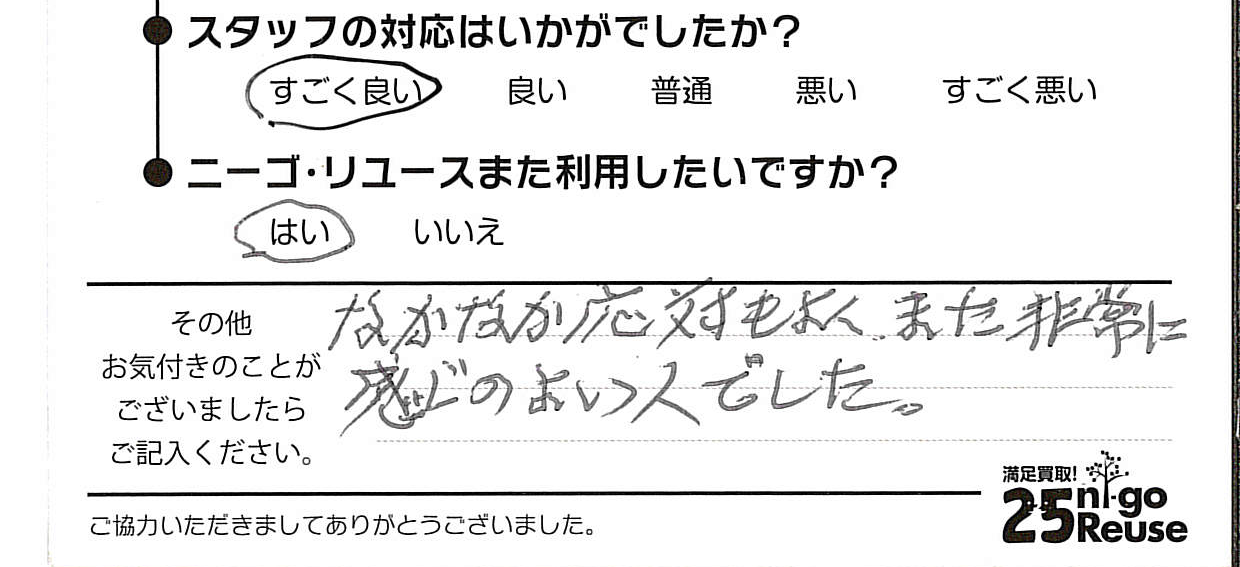 スタッフの対応はいかがでしたか?
すごく良い 良い 普通 悪い すごく悪い
ニーゴ・リユースまた利用したいですか?
はい いいえ
その他
お気付きのことが
ございましたら
ご記入ください。
なかなか応対もよく、また非常に
感じのよい人でした。
満足買取!
25 ni-go
Reuse
ご協力いただきましてありがとうございました。